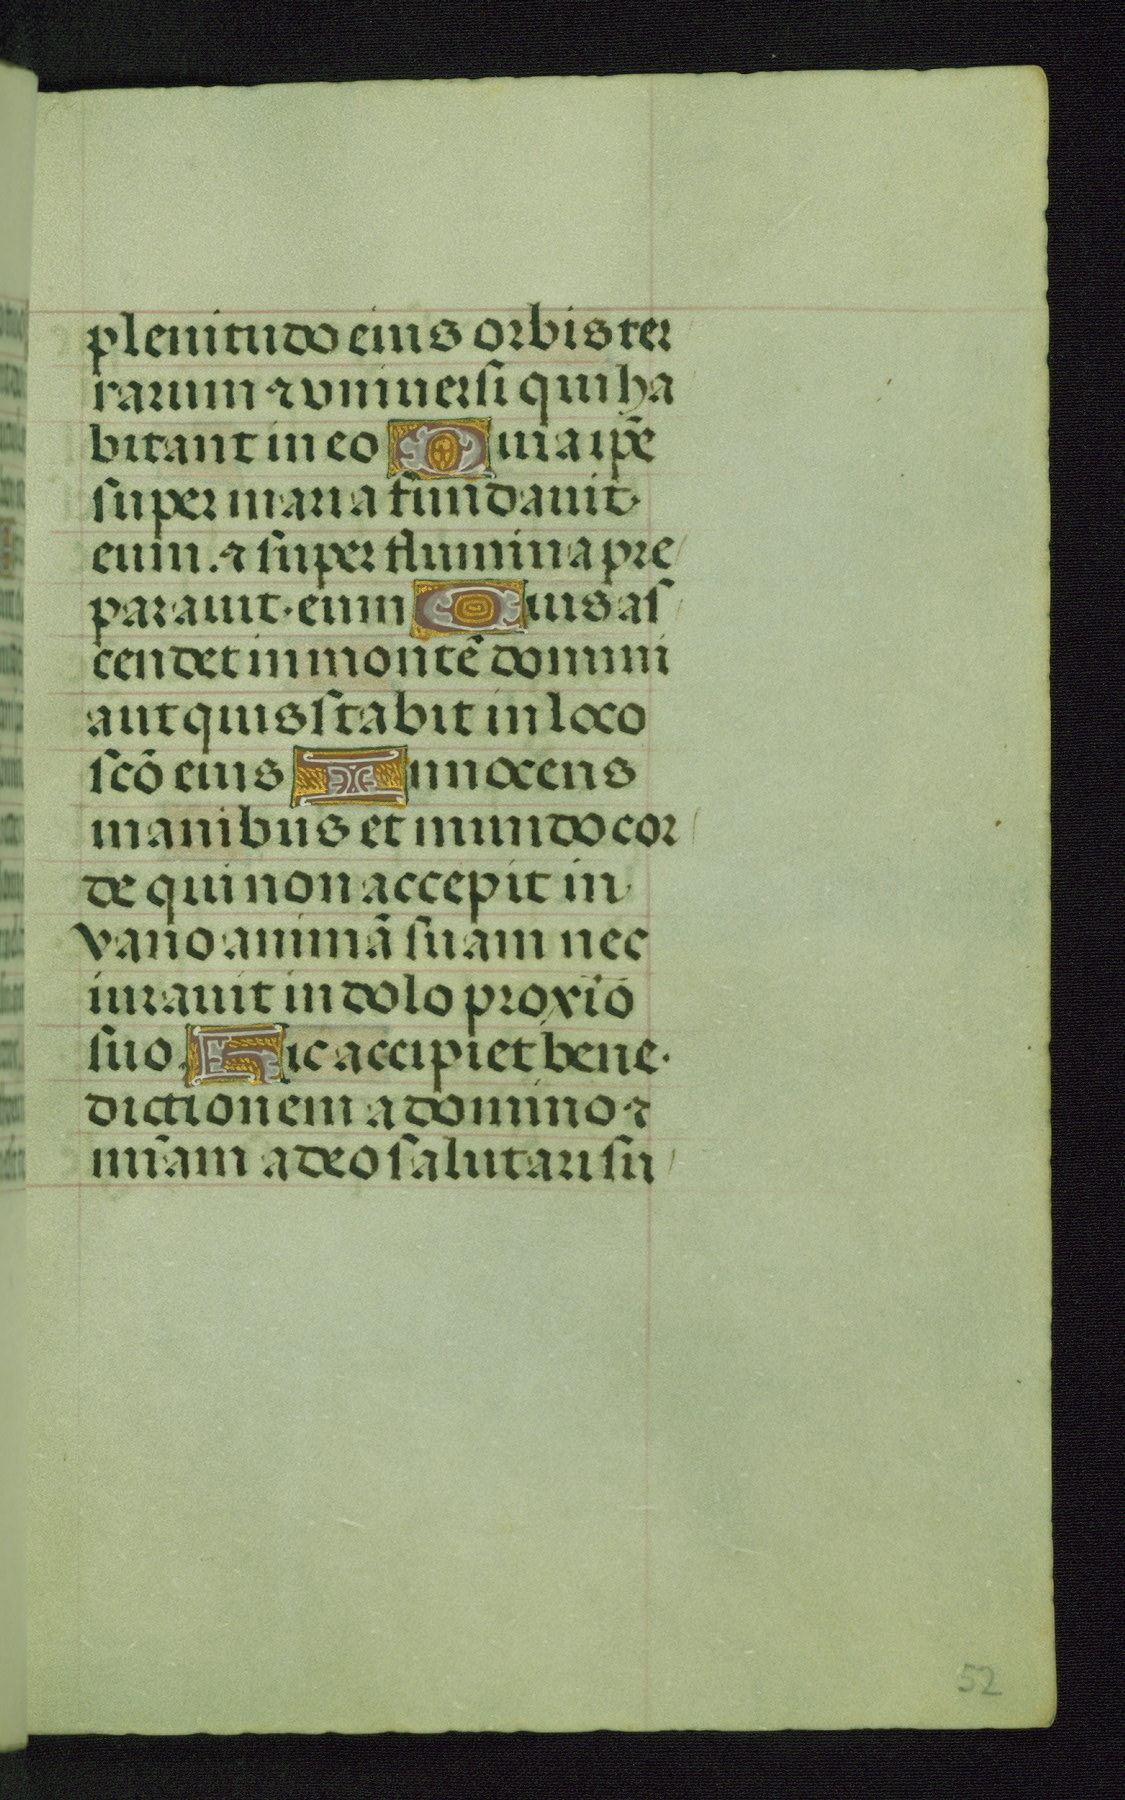 plenitudo eius orbis ter
rarum ⁊ vniuersi qui ha
bitant in eo Quia ip̃e
super maria fundauit·
eum.⁊ super flumina pre
parauit·eum Quis as
cendet in montẽ domini
aut quis stabit in loco
scõ eius Innocens
manibus et mundo cor
de qui non accepit in
vano animã suam nec
iurauit in dolo proxĩo
suo. Hic accipiet bene·
dictionem a domino ⁊
mĩam a deo salutari su
52